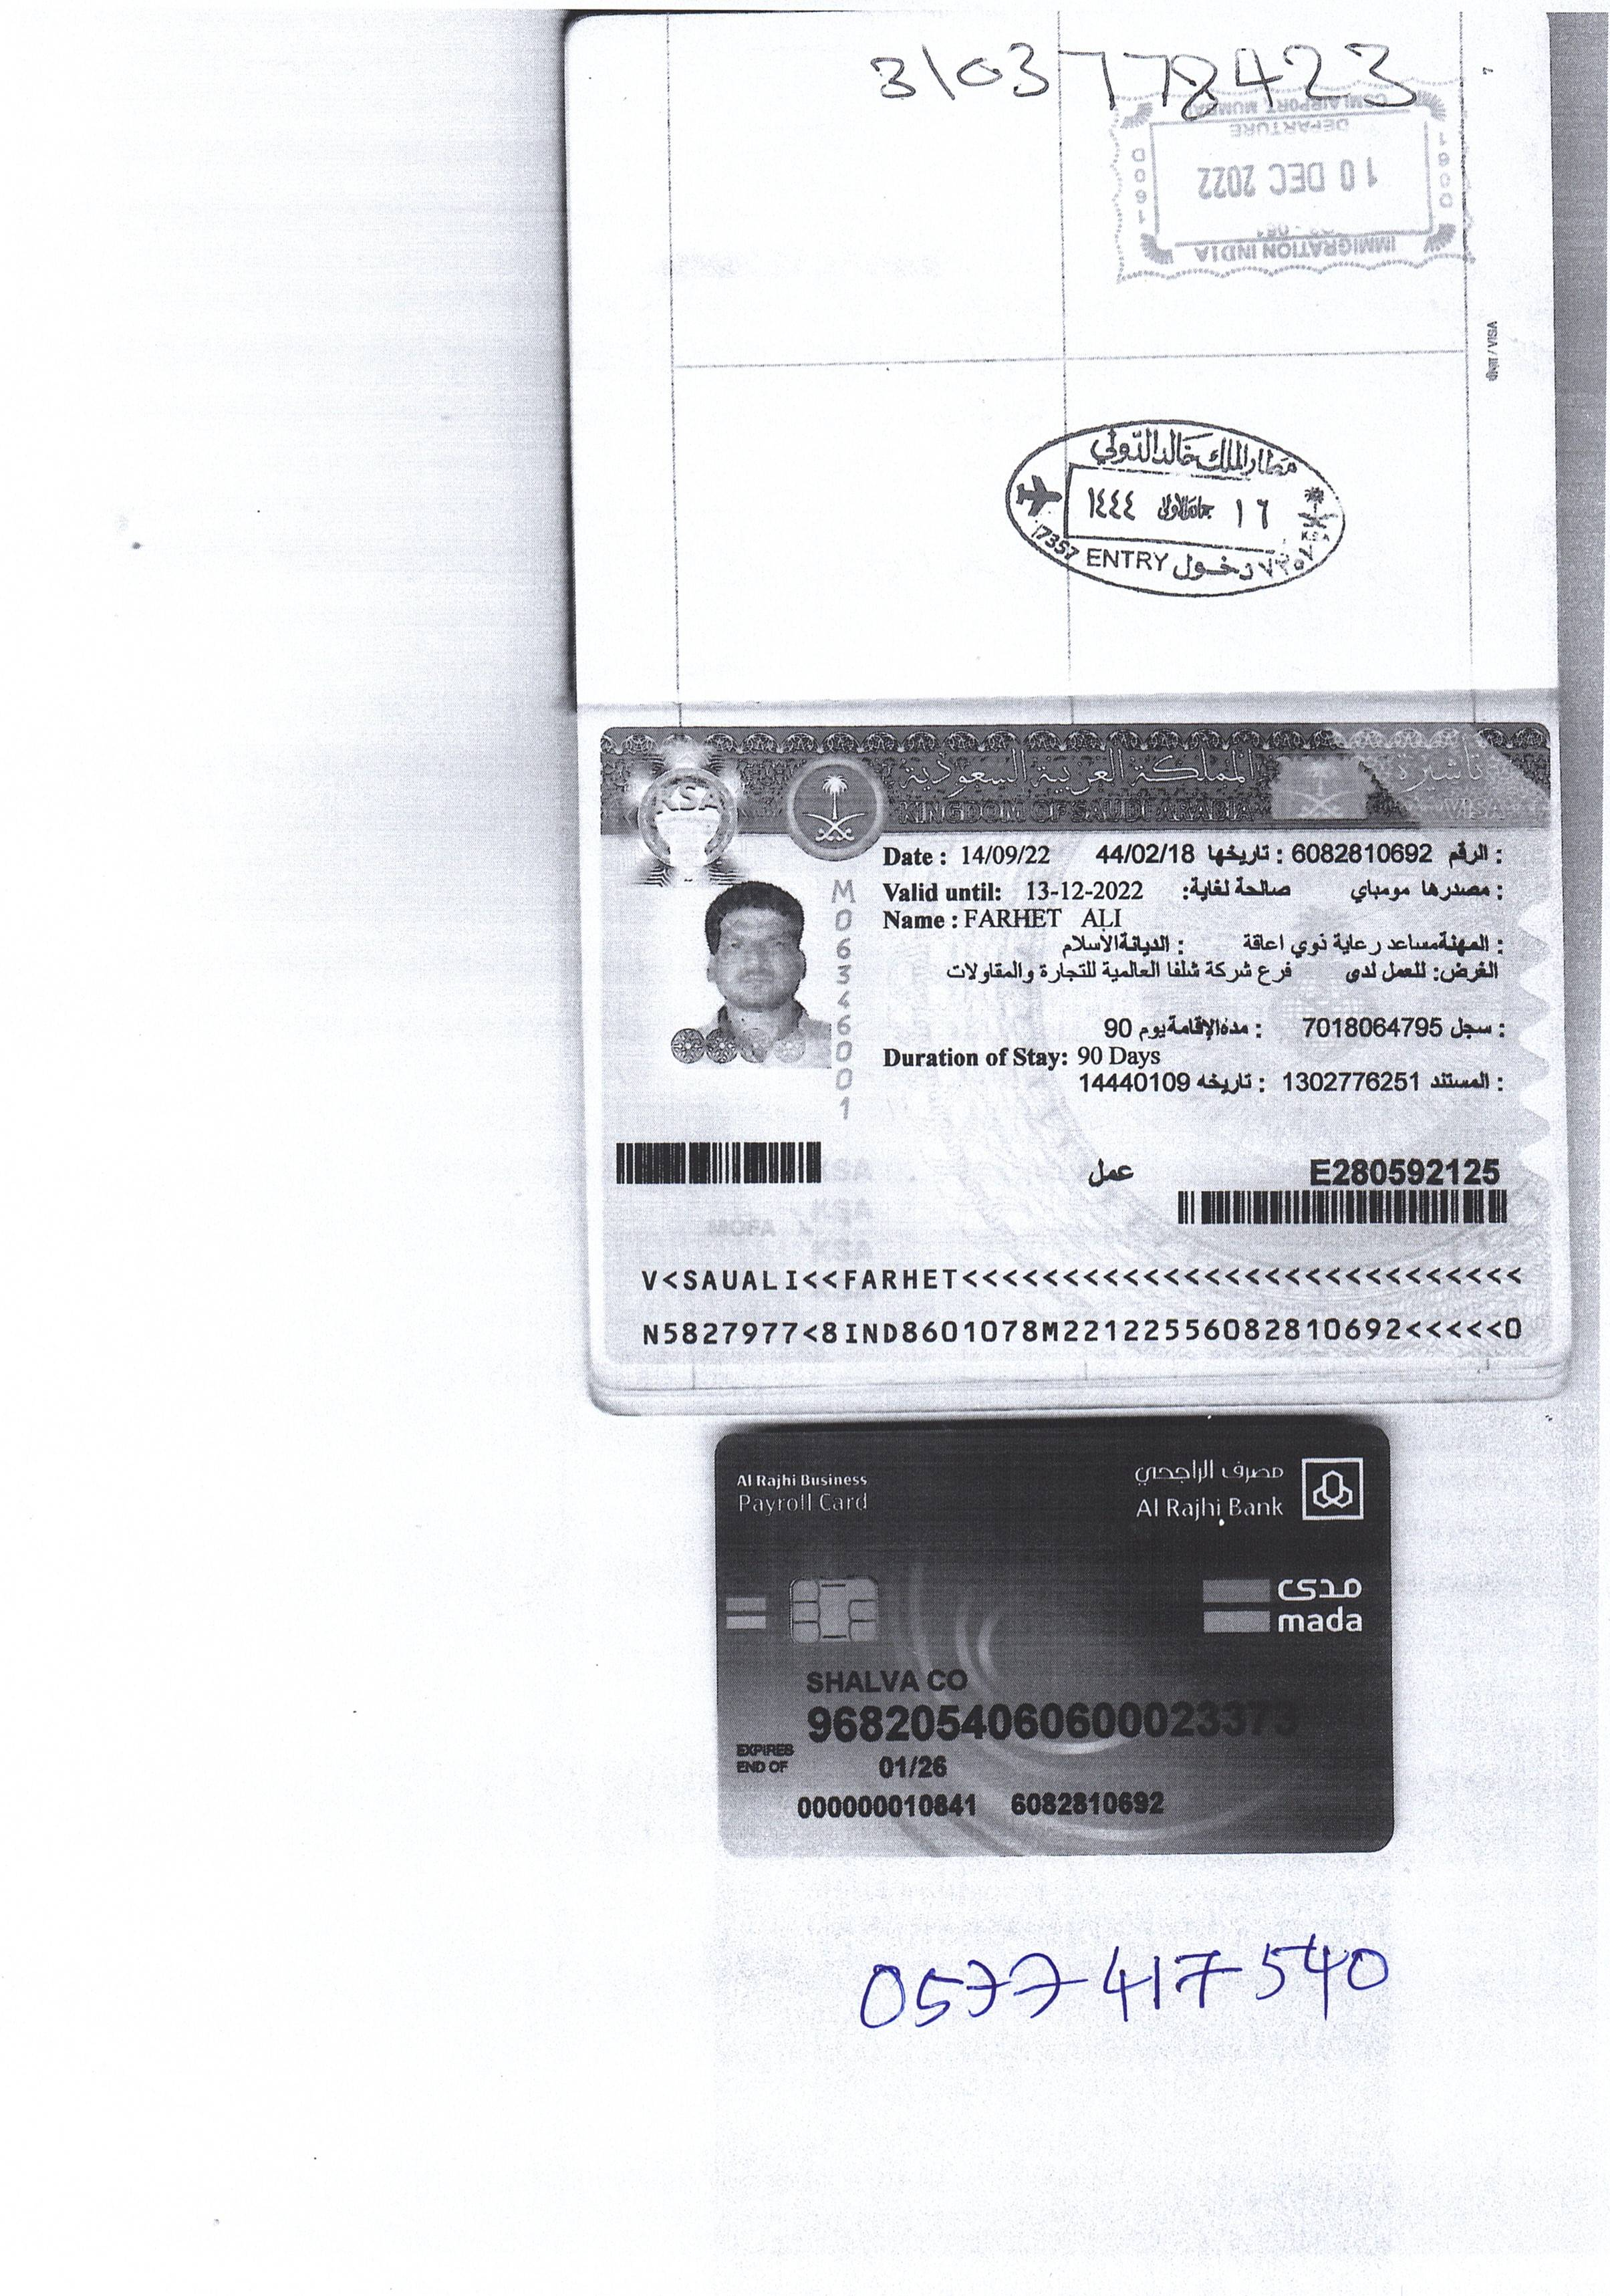 3103778423
7
CSMI AIRPORT MUMBAI
DEPARTURE
10 DEC 2022
IMMIGRATION INDIA
वीज़ा / VISA
مطار الملك خالد الدولي
١٦ جمادى الأولى ١٤٤٤
17357 ENTRY دخول
KSA
المملكة العربية السعودية تأشيرة
KINGDOM OF SAUDI ARABIA VISA
KSA
Date : 14/09/22 الرقم : 6082810692 تاريخها : 44/02/18
Valid until: 13-12-2022 مصدرها : مومباي صالحة لغاية:
Name : FARHET ALI
المهنة : مساعد رعاية ذوي اعاقة الديانة : الاسلام
الغرض: للعمل لدى فرع شركة شلفا العالمية للتجارة والمقاولات
سجل : 7018064795 مدة الإقامة : 90 يوم
Duration of Stay: 90 Days
المستند : 1302776251 تاريخه : 14440109
عمل E280592125
V<SAUALI<<FARHET<<<<<<<<<<<<<<<<<<<<<<<<<<<<
N5827977<8IND8601078M22122556082810692<<<<<0
Al Rajhi Business
Payroll Card
مصرف الراجحي
Al Rajhi Bank
مدى
mada
SHALVA CO
9682054060600023373
EXPIRES
END OF 01/26
000000010841 6082810692
0577417540